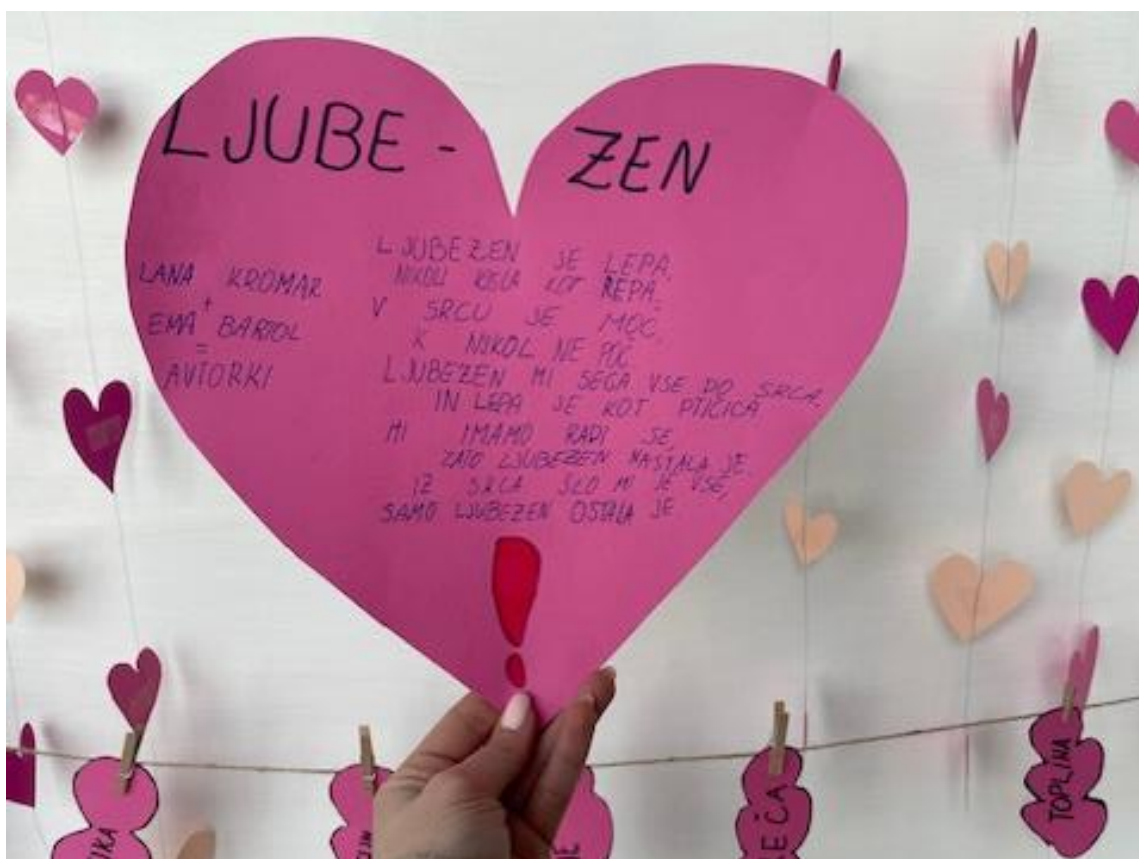 LJUBE - ZEN
LANA KROMAR
+
EMA BARTOL
=
AVTORKI
LJUBEZEN JE LEPA,
NIKOLI KISLA KOT REPA.
V SRCU JE MOČ,
K NIKOL NE POČ
LJUBEZEN MI SEGA VSE DO SRCA,
IN LEPA JE KOT PTIČICA
MI IMAMO RADI SE,
ZATO LJUBEZEN NASTALA JE.
IZ SRCA ŠLO MI JE VSE,
SAMO LJUBEZEN OSTALA JE
!
TOPLINA